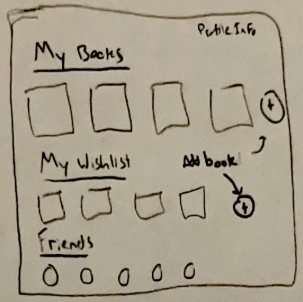 Profile Info
My Books
+
My Wishlist
Add book
+
Friends